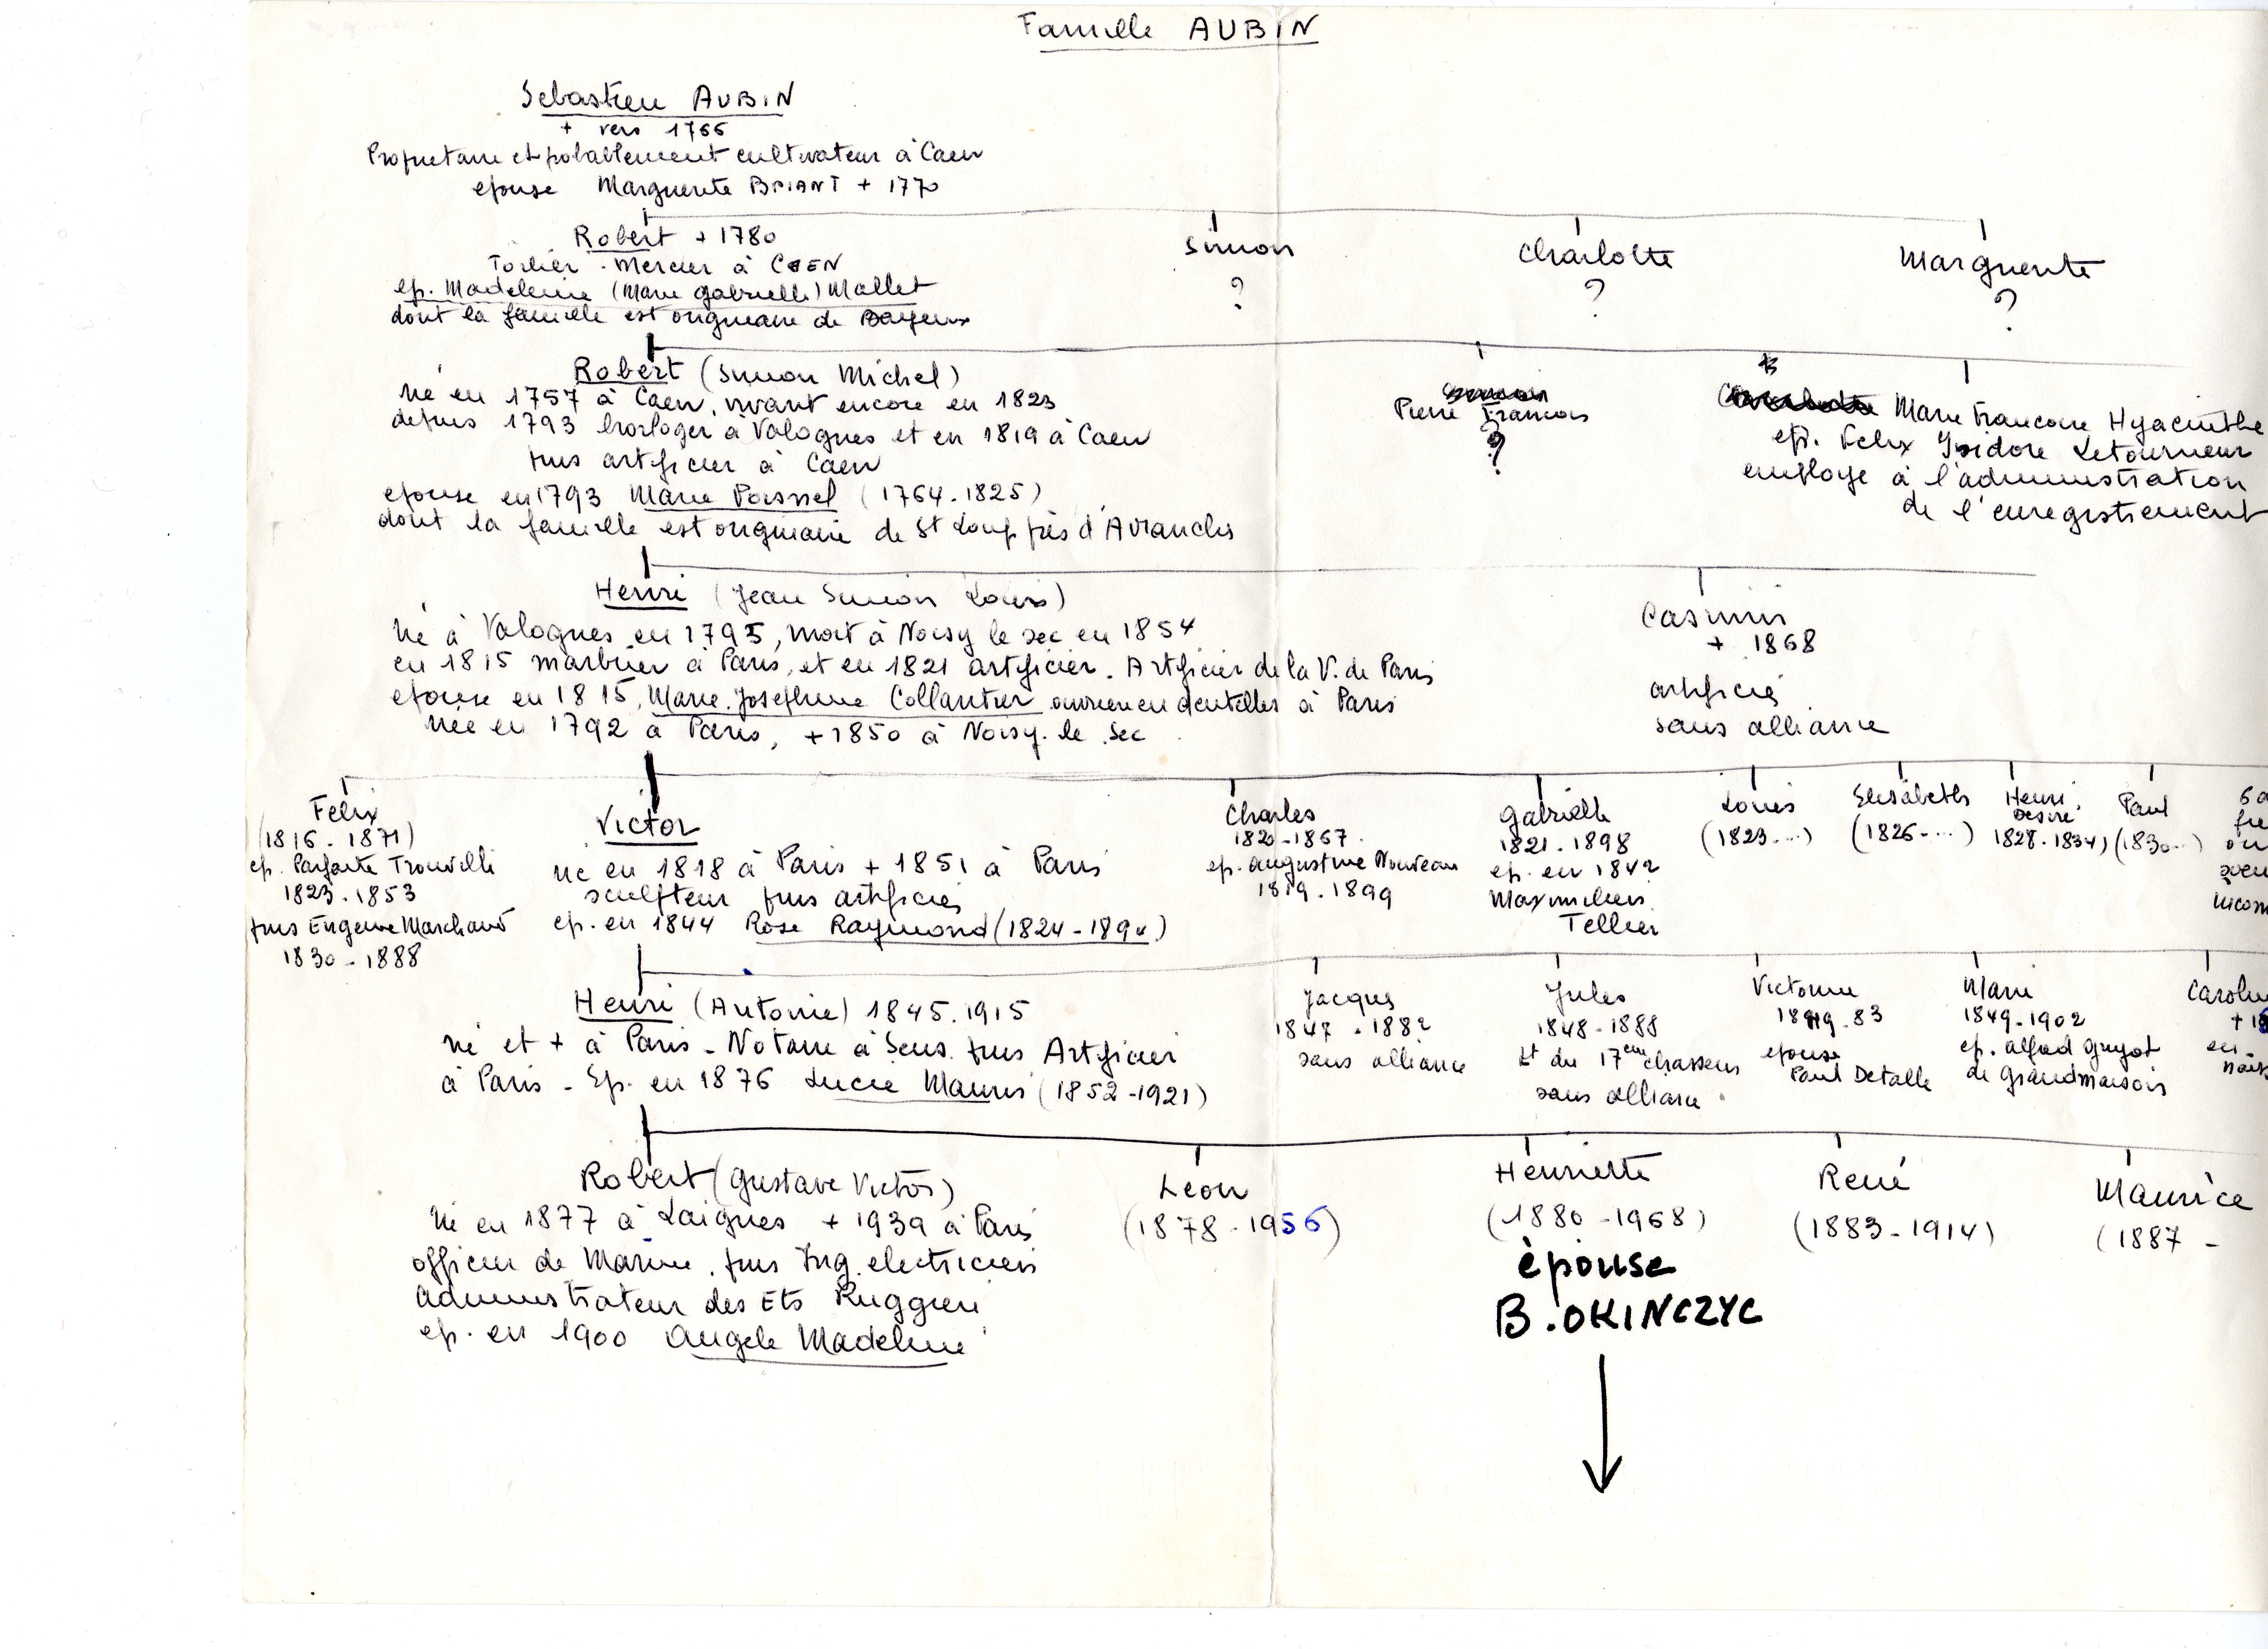 Famille AUBIN
Sebastien AUBIN
+ vers 1766
Proprietaire et probablement cultivateur à Caen
epouse Marguerite BRIANT + 1770
Robert + 1780
Toilier - Mercier à CAEN
ep. Madeleine (Marie Gabrielle) Mallet
dont la famille est originaire de Bayeux
Simon
?
Charlotte
?
Marguerite
?
Robert (Simon Michel)
né en 1757 à Caen, vivant encore en 1823
depuis 1793 horloger à Valognes et en 1819 à Caen
puis artificier à Caen
epouse en 1793 Marie Poisnel (1764-1825)
dont la famille est originaire de St Loup près d'Avranches
Pierre Francois
?
Marie Francoise Hyacinthe
ep. Felix Isidore Letourneur
employe à l'administration
de l'enregistrement
Henri (Jean Simon Louis)
Né à Valognes en 1795, mort à Noisy le sec en 1854
en 1815 marbrier à Paris, et en 1821 artificier. Artificier de la V. de Paris
epouse en 1815, Marie Josephine Collantier ouvriere en dentelles à Paris
née en 1792 à Paris, +1850 à Noisy-le-Sec
Casimir
+ 1868
artificier
sans alliance
Felix
(1816-1871)
ep. Parfaite Trouvelle
1823-1853
puis Eugenie Marchand
1830-1888
Victor
né en 1818 à Paris + 1851 à Paris
sculpteur puis artificier
ep. en 1844 Rose Raymond (1824-189)
Charles
1820-1867
ep. Augustine Nouveau
1819-1899
Gabrielle
1821-1898
ep. en 1842
Maximilien
Tellier
Louis
(1823...)
Elisabeth
(1826-...)
Henri
Desiré
1828-1834)
Paul
(1830...)
ou
Henri (Antoine) 1845-1915
né et + à Paris - Notaire à Sens puis Artificier
à Paris - Ep. en 1876 Lucie Mauris (1852-1921)
Jacques
1847-1882
sans alliance
Jules
1848-1888
Lt du 17eme chasseurs
sans alliance
Victorine
1849-83
epouse
Paul Detalle
Marie
1849-1902
ep. Alfred Guyot
de Grandmaison
Robert (Gustave Victor)
Né en 1877 à Laignes + 1939 à Paris
officier de Marine, puis Ing. electricien
administrateur des Ets Ruggieri
ep. en 1900 Angele Madeline
Léon
(1878-1956)
Henriette
(1880-1968)
épouse
B. OKINCZYC
René
(1883-1914)
Maurice
(1887 -